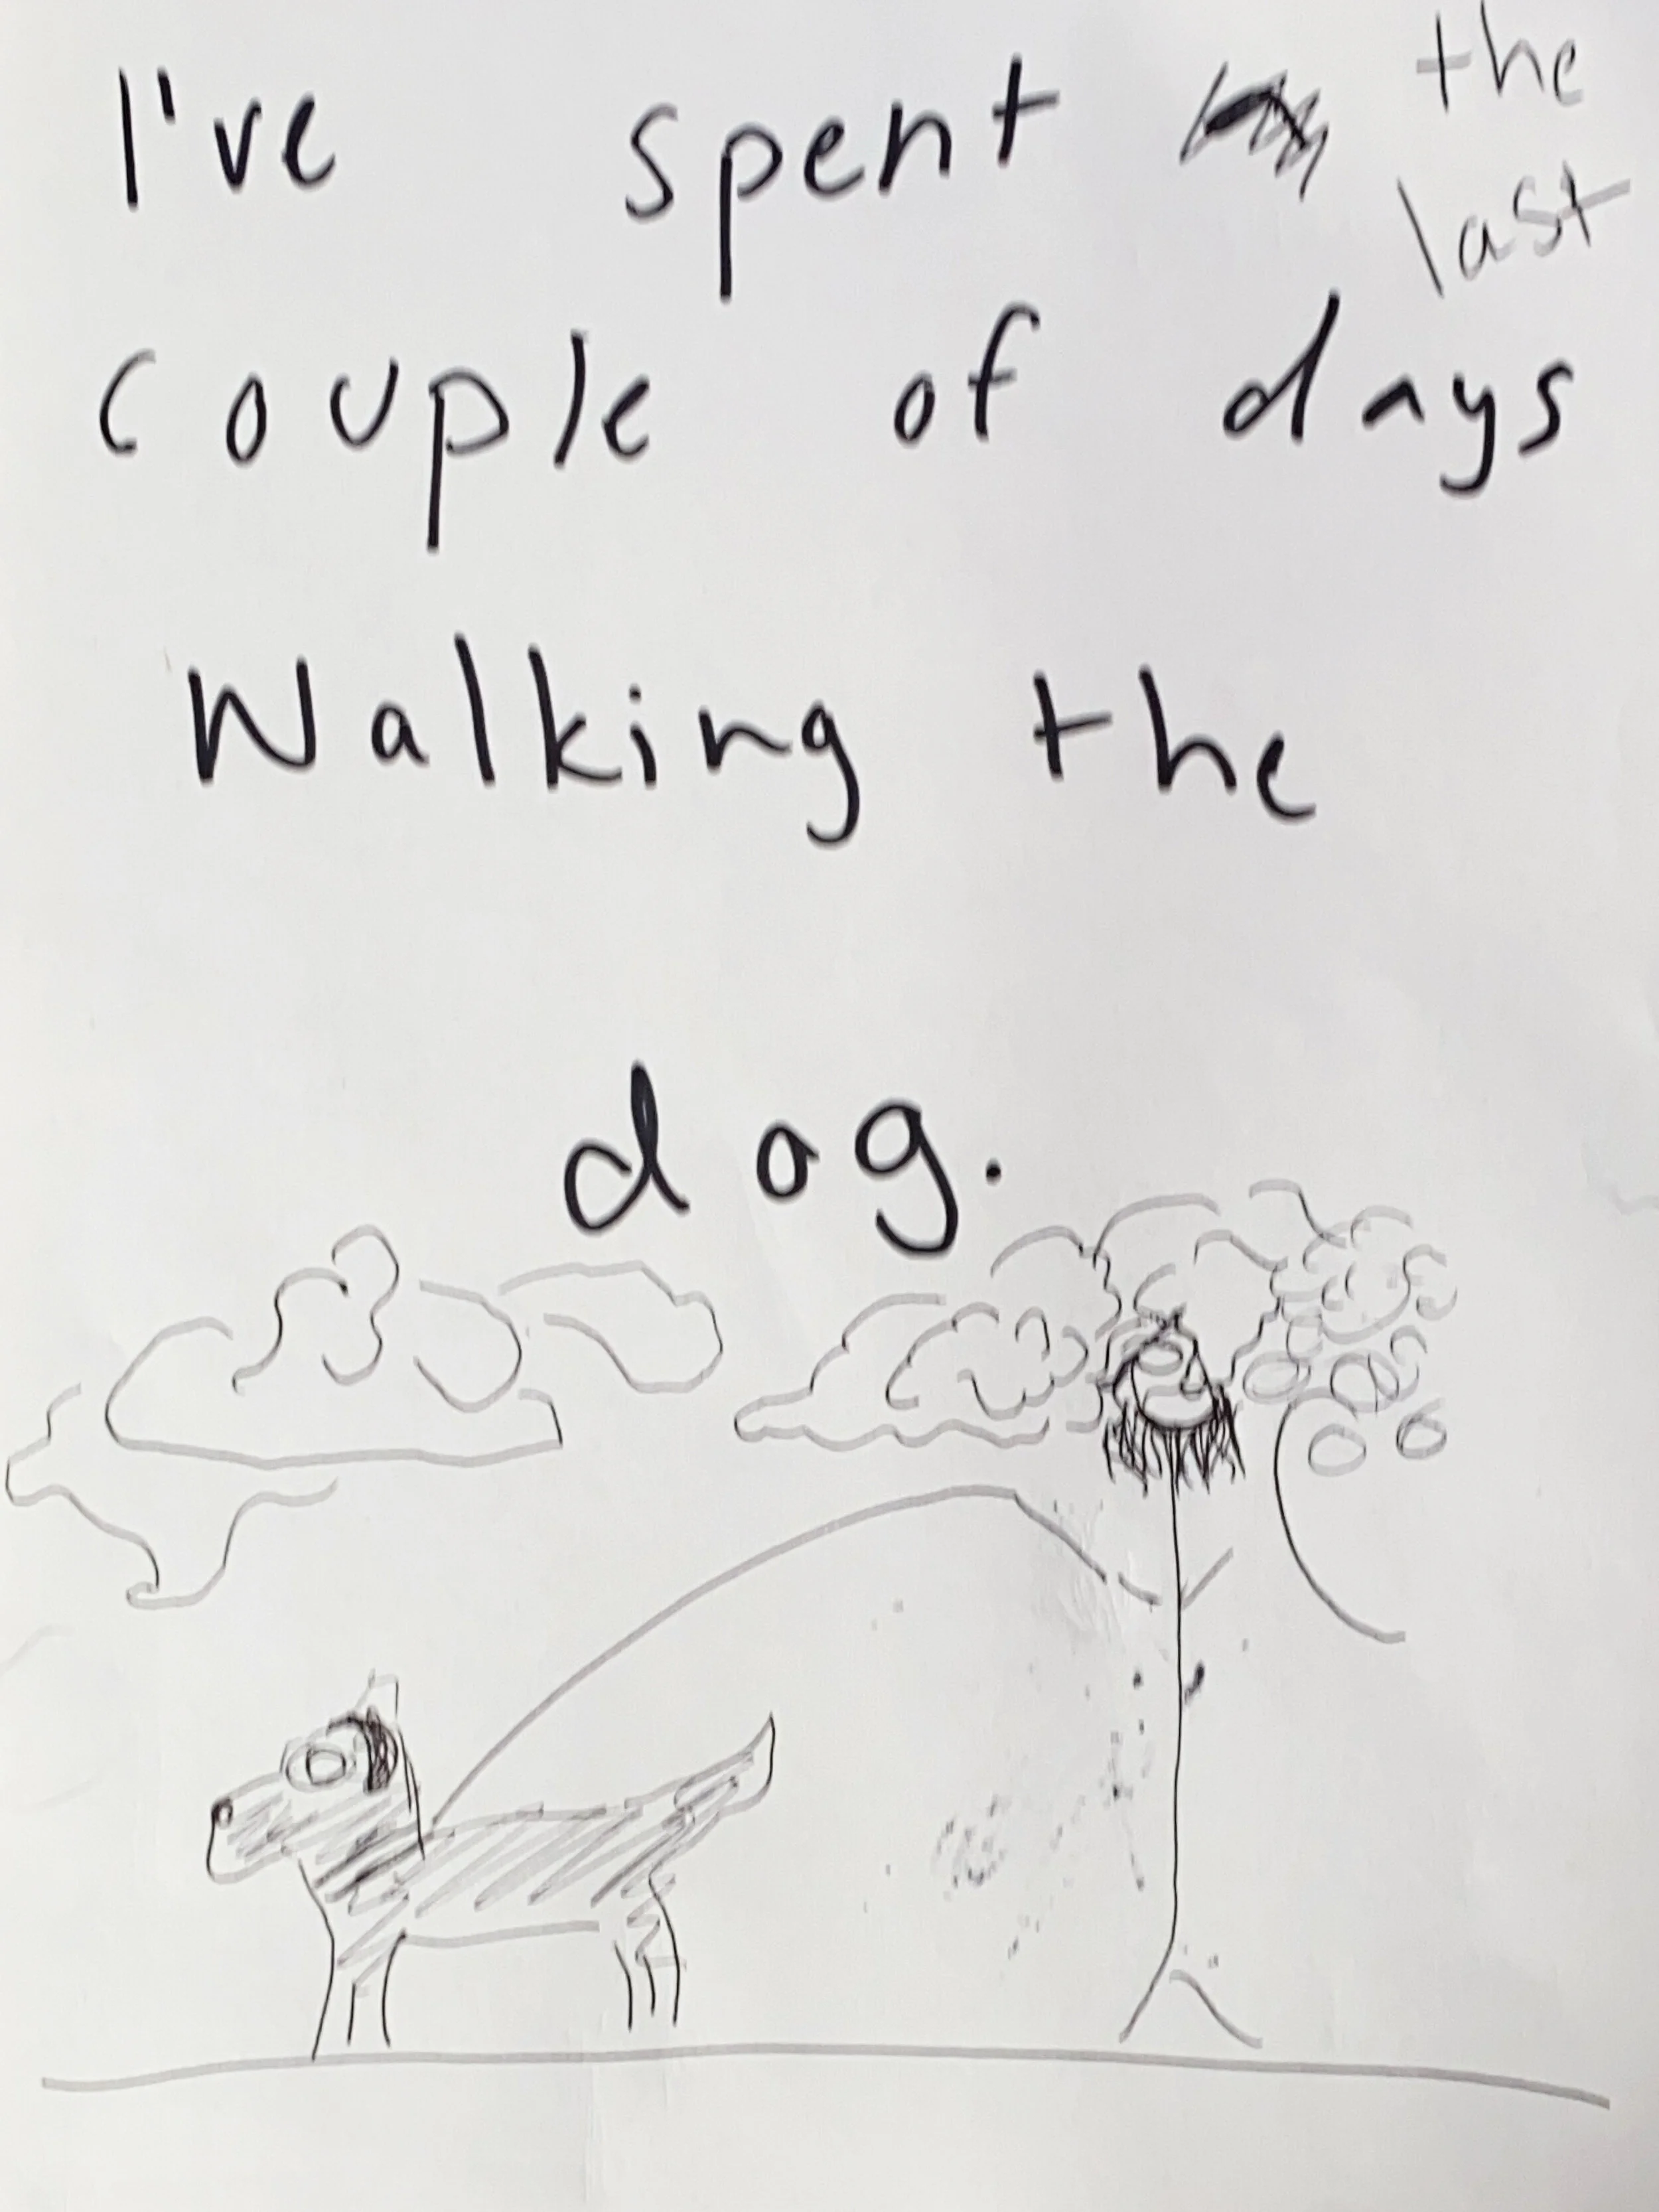 I've spent the
last
couple of days
Walking the
dog.